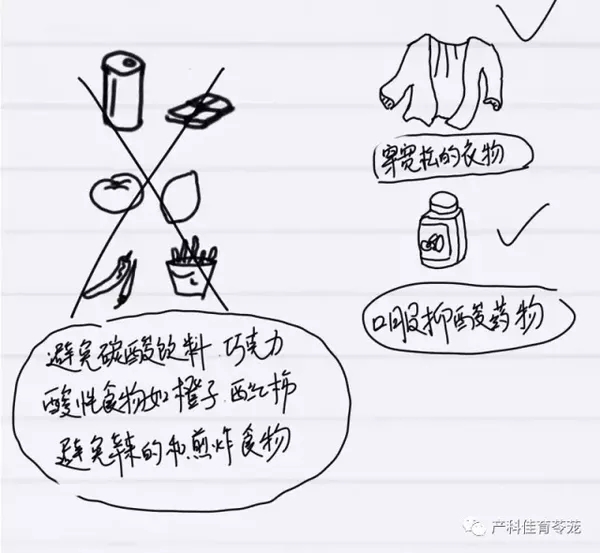 穿宽松的衣物
口服抑酸药物
避免碳酸饮料.巧克力
酸性食物如橙子.西红柿
避免辣的和煎炸食物
产科佳育苓茏